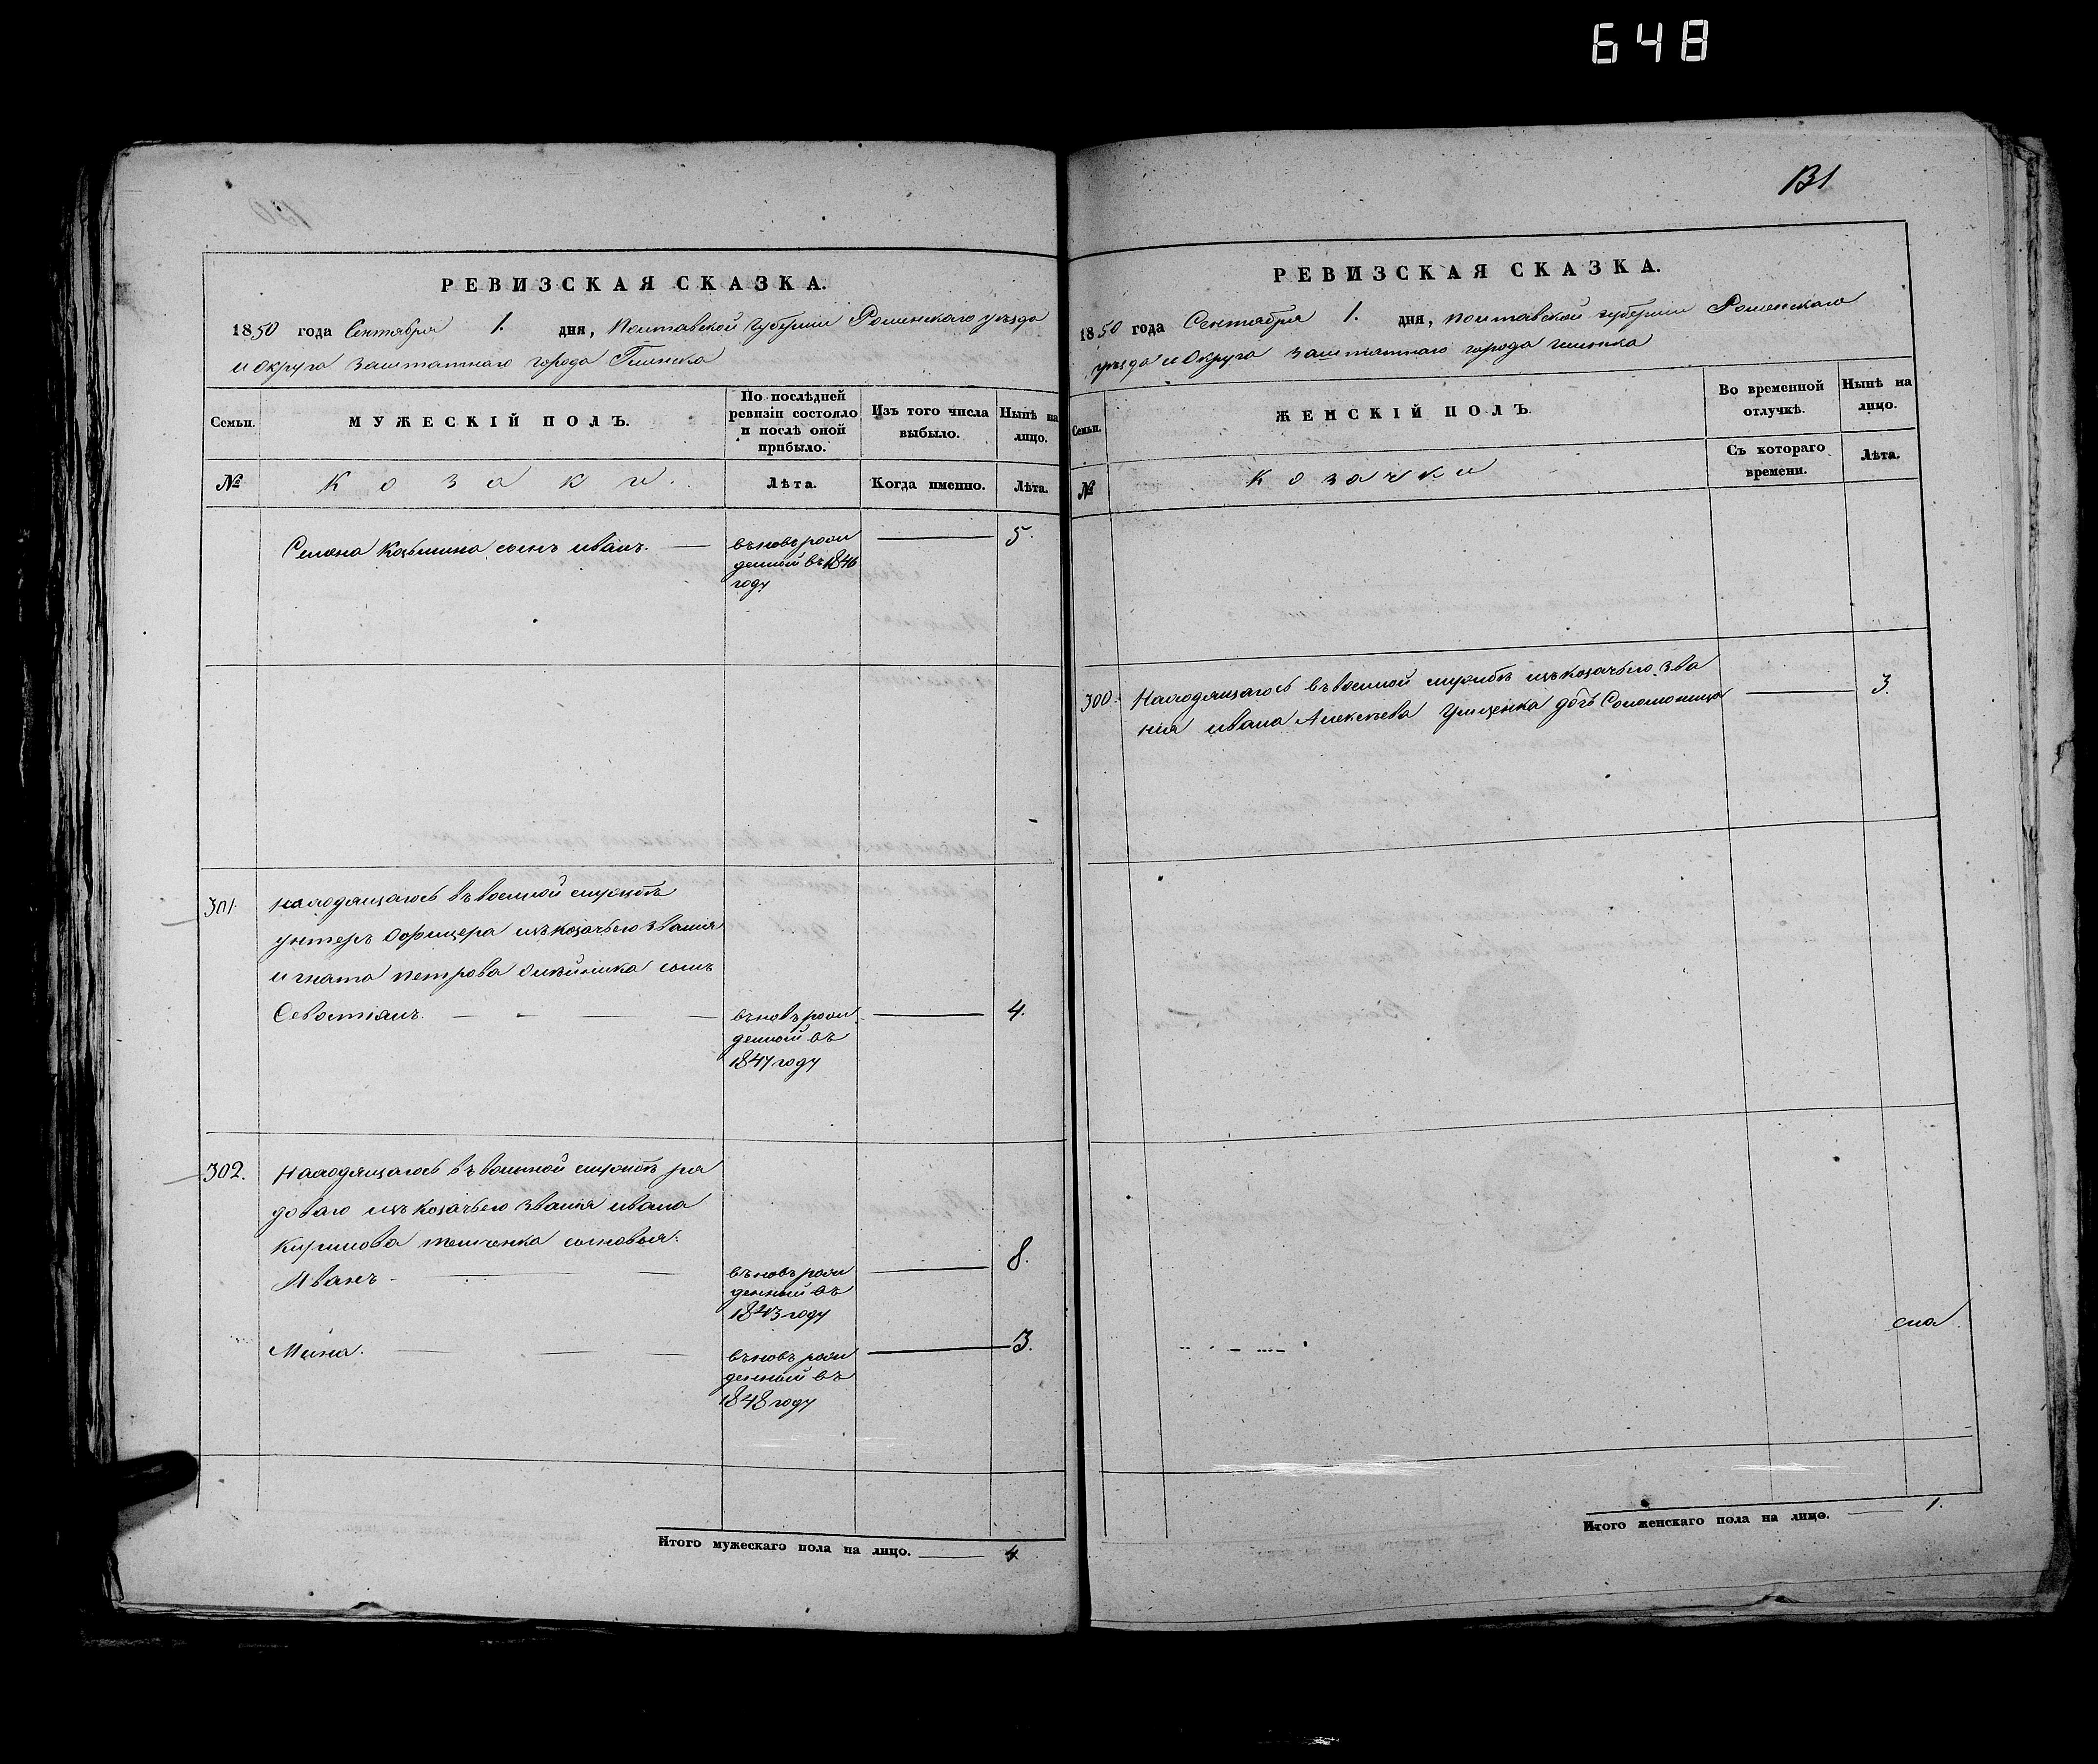 648
131
РЕВИЗСКАЯ СКАЗКА.
1850 года Сентября 1. дня, Полтавской губерніи Роменскаго уѣзда
и округа заштатнаго города Глинска
Семьи.
МУЖЕСКІЙ ПОЛЪ.
По послѣдней
ревизіи состояло
и послѣ оной
прибыло.
Изъ того числа
выбыло.
Нынѣ на
лицо.
№
Козаки.
Лѣта.
Когда именно.
Лѣта.
Семена Козьмина сынъ иванъ.
вновь рож
денной въ 1846
году
5.
301.
находящагося въ военной службѣ
унтеръ Офицера изъ козачьего звания
игната петрова Олейника сынъ
Севастіянъ.
вновь рож
денной въ
1847 году
4.
302.
Находящагося въ военной службѣ ря
доваго изъ козачьего звания ивана
Кирилова сыновья:
Иванъ
вновь рож
денный въ
1843 году
8.
Мина.
вновь рож
денный въ
1848 году
3.
Итого мужескаго пола на лицо. 4
РЕВИЗСКАЯ СКАЗКА.
1850 года Сентября 1. дня, полтавской губерніи Роменскаго
уѣзда и Округа заштатнаго города глинска
Семьи.
ЖЕНСКІЙ ПОЛЪ.
Во временной
отлучкѣ.
Нынѣ на
лицо.
№
Козачки
Съ котораго
времени.
Лѣта.
300.
Находящагося въ военной службѣ изъ козачьего зва
ния ивана Алексѣева Грищенка дочь Соломонида
3.
Итого женскаго пола на лицо. 1.